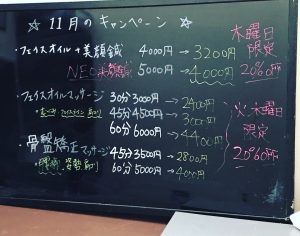 ☆ 11月のキャンペーン ☆
・フェイスオイル+美顔鍼 4000円 → 3200円
NEO美顔鍼 5000円 → 4000円
木曜日
限定
20%off
・フェイスオイルマッサージ 30分 3000円 → 2400円
45分 4500円 → 3000円
60分 6000円 → 4400円
火、木曜日
限定
20%off
・骨盤矯正マッサージ 45分 3500円 → 2800円
60分 5000円 → 4000円